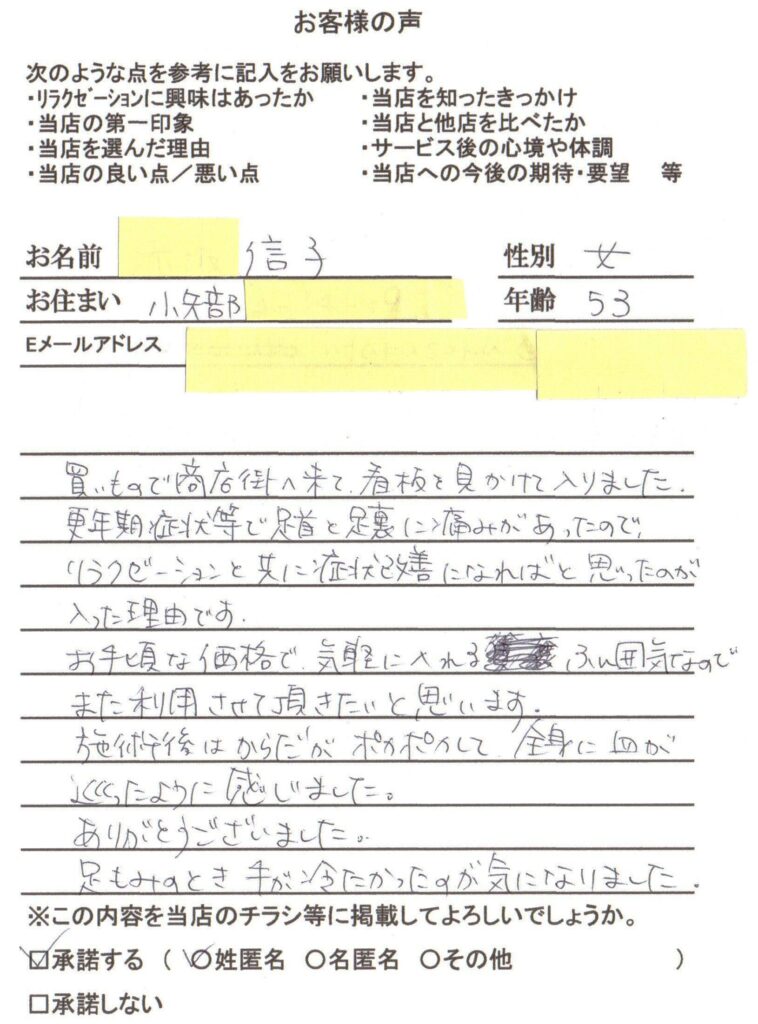 お客様の声
次のような点を参考に記入をお願いします。
・ﾘﾗｸｾﾞｰｼｮﾝに興味はあったか ・当店を知ったきっかけ
・当店の第一印象 ・当店と他店を比べたか
・当店を選んだ理由 ・サービス後の心境や体調
・当店の良い点／悪い点 ・当店への今後の期待・要望 等
お名前 信子 性別 女
お住まい 小矢部 年齢 53
Eメールアドレス
買いもので商店街へ来て、看板を見かけて入りました.
更年期症状等で足首と足裏に痛みがあったので、
リラクゼーションと共に症状改善になればと思ったのが
入った理由です.
お手頃な価格で、気軽に入れる ふん囲気なので
また利用させて頂きたいと思います.
施術後はからだがポカポカして、全身に血が
巡ったように感じました。
ありがとうございました。
足もみのとき手が冷たかったのが気になりました.
※この内容を当店のチラシ等に掲載してよろしいでしょうか。
☑承諾する （ ○姓匿名 ○名匿名 ○その他 ）
□承諾しない